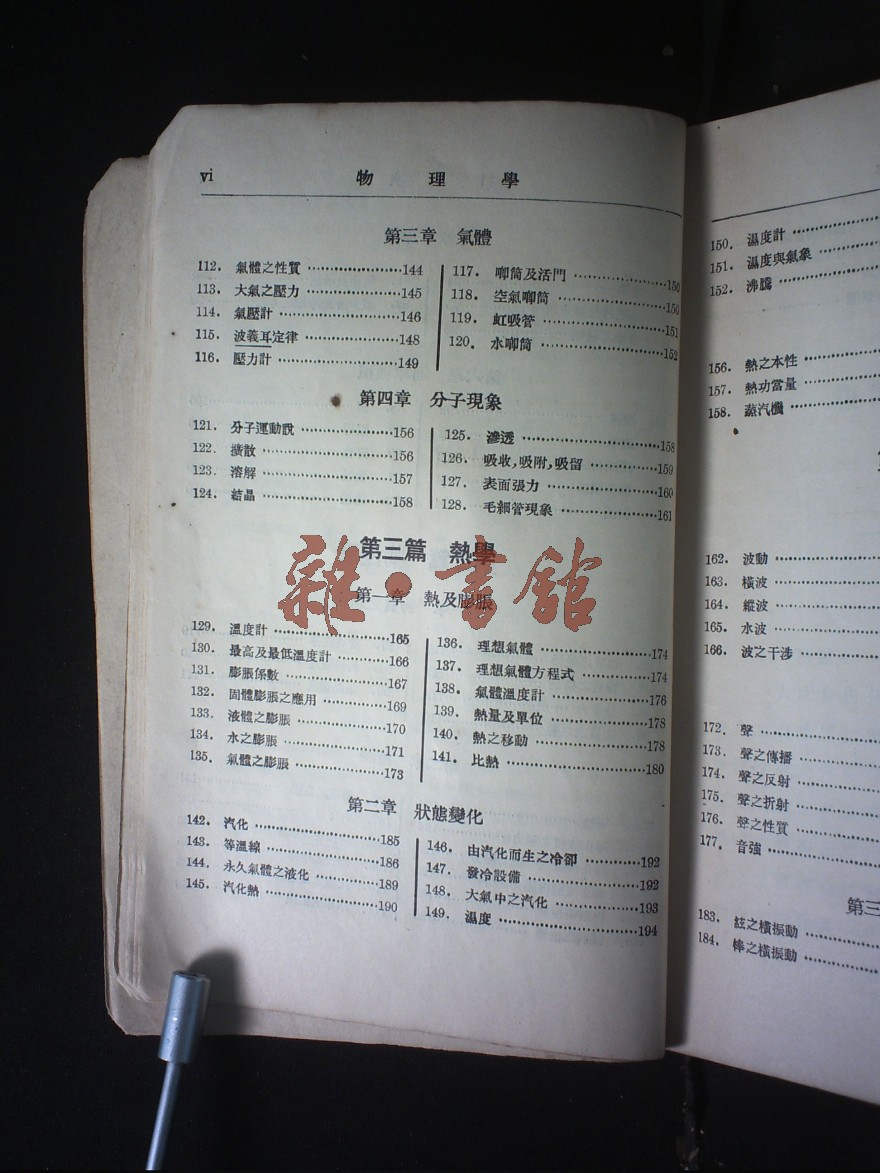 vi 物理學
第三章 氣體
112. 氣體之性質 144
113. 大氣之壓力 145
114. 氣壓計 146
115. 波義耳定律 148
116. 壓力計 149
117. 唧筒及活門 150
118. 空氣唧筒 150
119. 虹吸管 151
120. 水唧筒 152
第四章 分子現象
121. 分子運動說 156
122. 擴散 156
123. 溶解 157
124. 結晶 158
125. 滲透 158
126. 吸收,吸附,吸留 159
127. 表面張力 160
128. 毛細管現象 161
第三篇 熱學
雜·書館
第一章 熱及膨脹
129. 溫度計 165
130. 最高及最低溫度計 166
131. 膨脹係數 167
132. 固體膨脹之應用 169
133. 液體之膨脹 170
134. 水之膨脹 171
135. 氣體之膨脹 173
136. 理想氣體 174
137. 理想氣體方程式 174
138. 氣體溫度計 176
139. 熱量及單位 178
140. 熱之移動 178
141. 比熱 180
第二章 狀態變化
142. 汽化 185
143. 等溫線 186
144. 永久氣體之液化 189
145. 汽化熱 190
146. 由汽化而生之冷卻 192
147. 發冷設備 192
148. 大氣中之汽化 193
149. 濕度 194
150. 濕度計
151. 濕度與氣象
152. 沸騰
156. 熱之本性
157. 熱功當量
158. 蒸汽機
162. 波動
163. 橫波
164. 縱波
165. 水波
166. 波之干涉
172. 聲
173. 聲之傳播
174. 聲之反射
175. 聲之折射
176. 聲之性質
177. 音強
第三
183. 絃之橫振動
184. 棒之橫振動